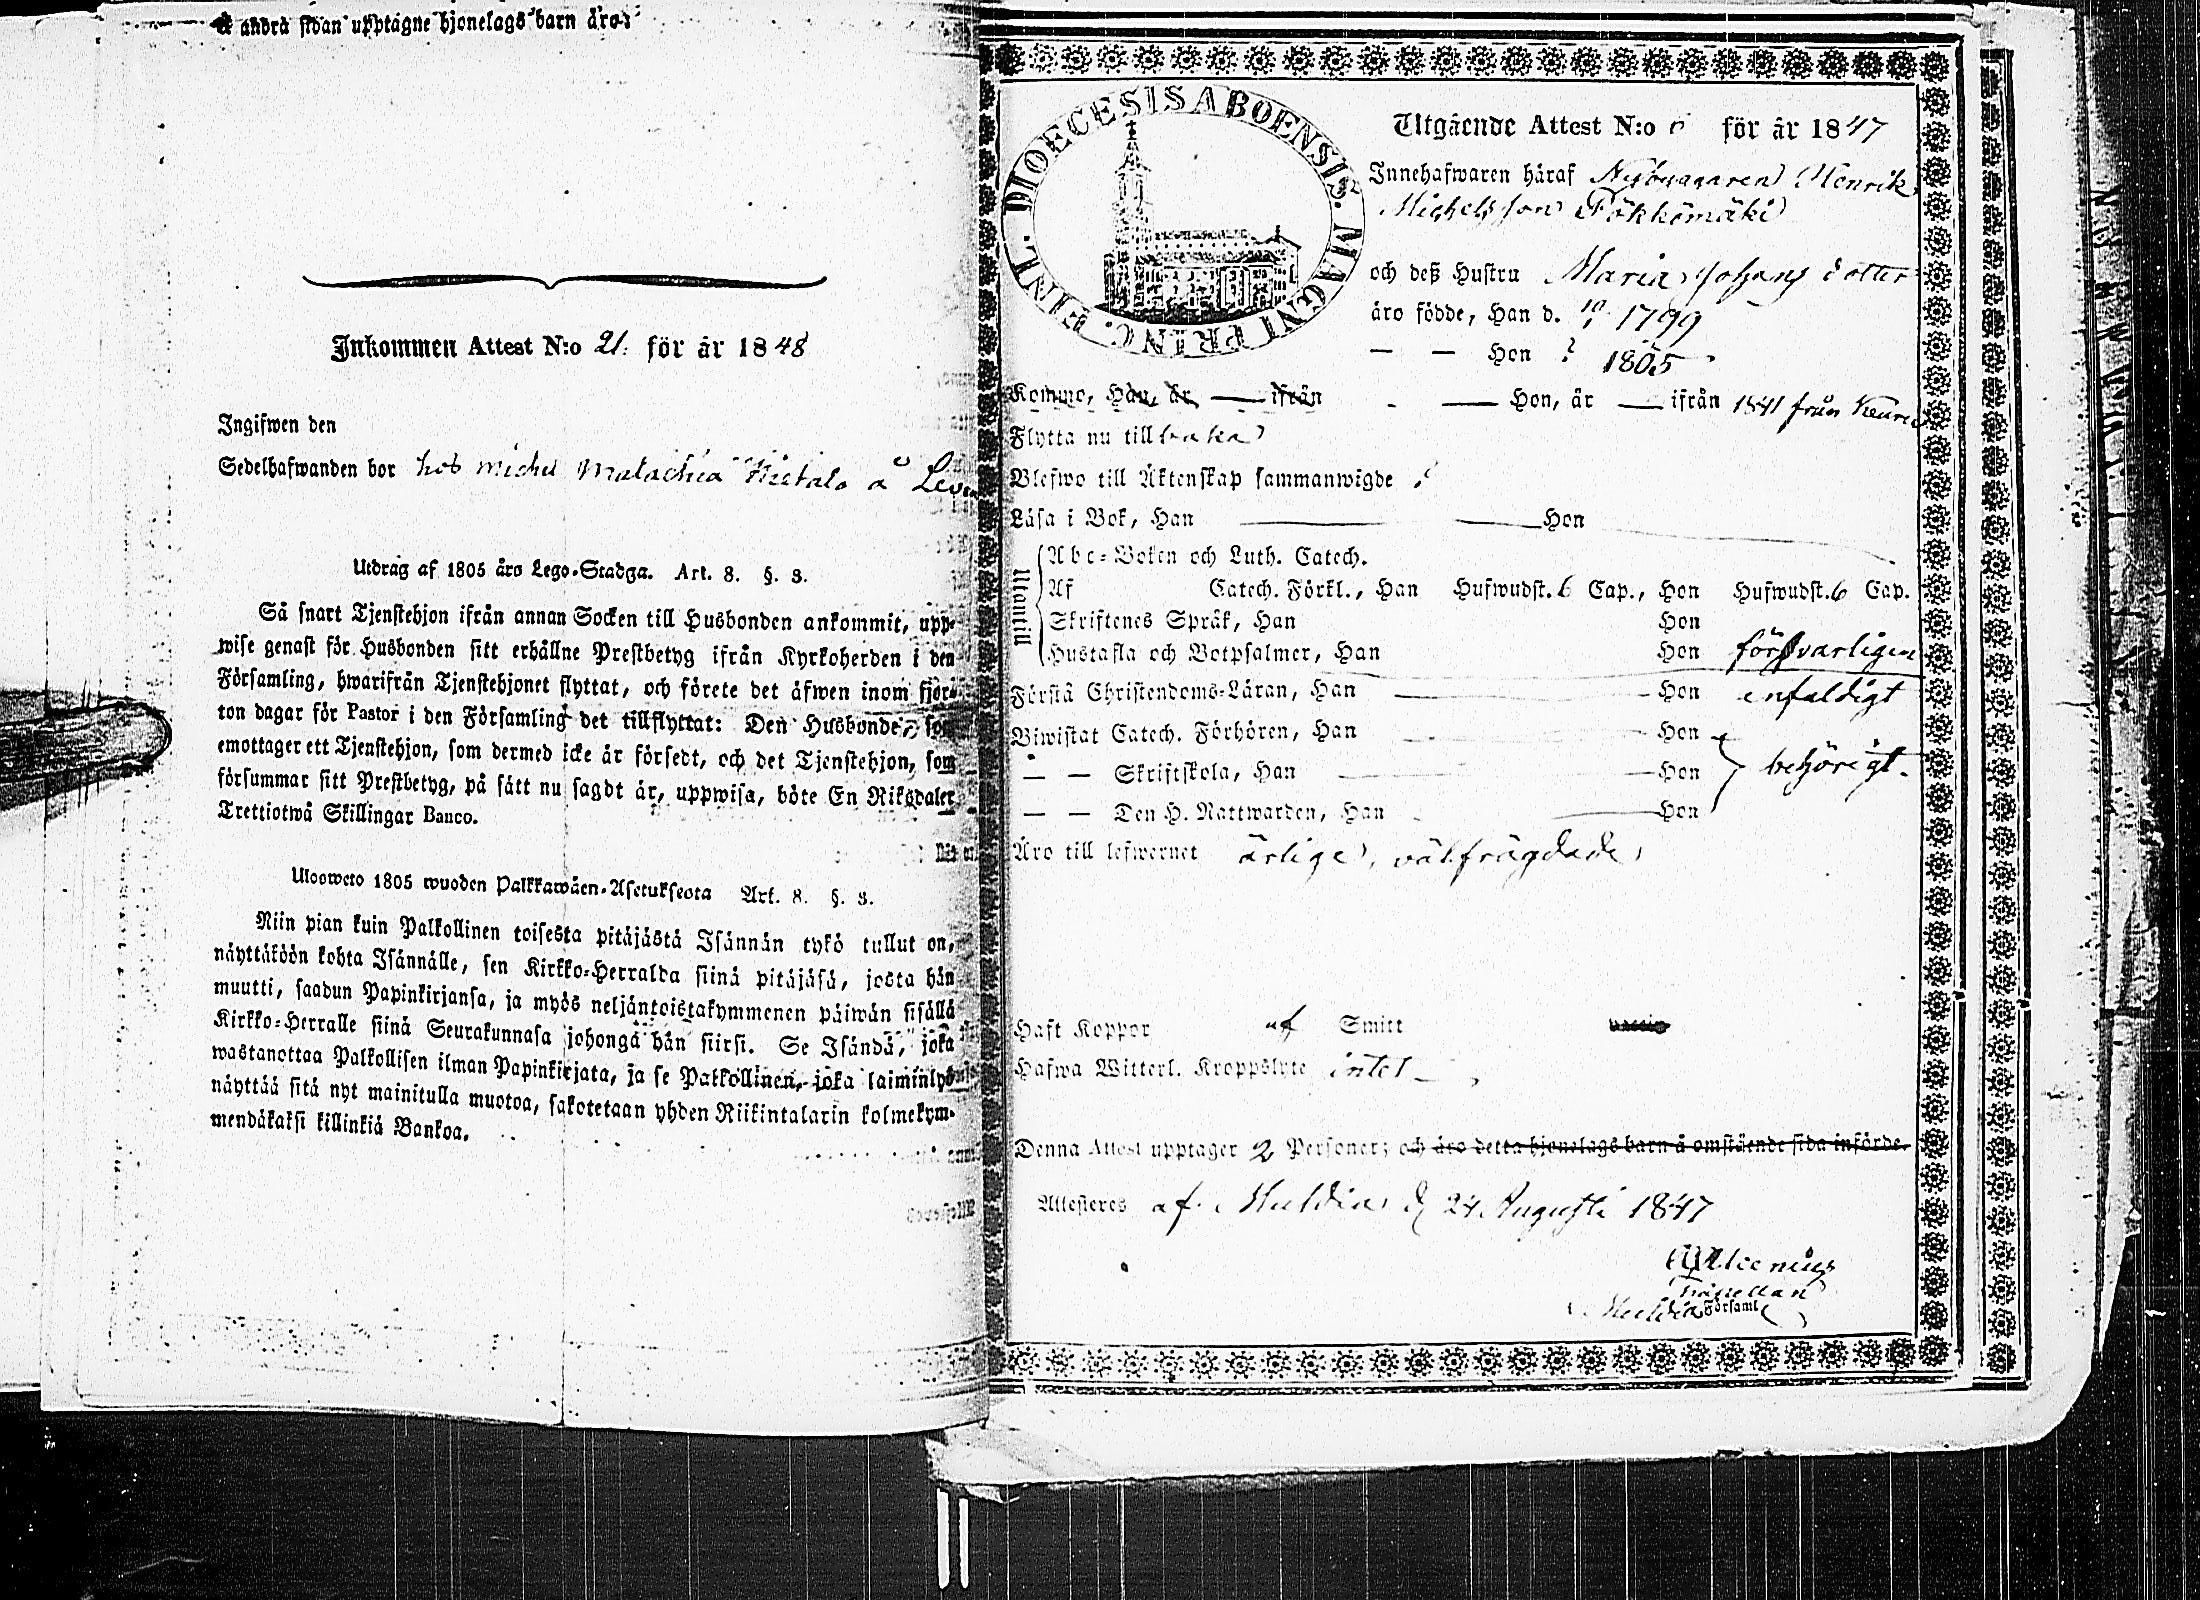 å andra sidan upptagne hjonelags barn äro:
Inkommen Attest N:o 21. för år 1848
Ingifwen den
Sedelhafwanden bor hos Michel Malachia Hietala å
Utdrag af 1805 års Lego-Stadga. Art. 8. §. 3.
Så snart Tjenstehjon ifrån annan Socken till Husbonden ankommit, upp-
wise genast för Husbonden sitt erhållne Prestbetyg ifrån Kyrkoherden i den
Församling, hwarifrån Tjenstehjonet flyttat, och förete det äfwen inom fjor-
ton dagar för Pastor i den Församling det tillflyttat: Den Husbonde, som
emottager ett Tjenstehjon, som dermed icke är försedt, och det Tjenstehjon, som
försummar sitt Prestbetyg, på sätt nu sagdt är, uppwisa, böte En Riksdaler
Trettiotwå Skillingar Banco.
Uloosweto 1805 wuoden Palkkawäen-Asetuksesta Art. 8. §. 3.
Niin pian kuin Palkollinen toisesta pitäjästä Isännän tykö tullut on,
näyttäköön kohta Isännälle, sen Kirkko-Herralda siinä pitäjäsä, josta hän
muutti, saadun Papinkirjansa, ja myös neljäntoistakymmenen päiwän sisällä
Kirkko-Herralle siinä Seurakunnasa johonga hän siirsi. Se Isändä, joka
wastanottaa Palkollisen ilman Papinkirjata, ja se Palkollinen, joka laiminlyö
näyttää sitä nyt mainitulla muotoa, sakotetaan yhden Riikintalarin kolmekym-
mendäkaksi killinkiä Bankoa.
DIOECESIS ABOENSIS. MAGNI PRINC. FINL.
Utgående Attest N:o för år 1847
Innehafwaren häraf Nybyggaren Henrik
Michelsson Pökkömäki
och deß Hustru Maria Johans dotter
äro födde, Han d. 1799
— — Hon ? 1805
Kommo, Han, år — ifrån — Hon, år — ifrån 1841 från Keuru
Flytta nu till baka
Blefwo till Äktenskap sammanwigde ?
Läsa i Bok, Han — Hon
Utantil
Abc-Boken och Luth. Catech.
Af Catech. Förkl., Han Hufwudst. 6 Cap., Hon Hufwudst. 6 Cap.
Skriftenes Språk, Han Hon
Hustafla och Botpsalmer, Han Hon försvarligen
Förstå Christendoms-Läran, Han — Hon enfaldigt
Biwistat Catech. Förhören, Han — Hon
— — Skriftskola, Han — Hon behörigt.
— — Den H. Nattwarden, Han — Hon
Äro till lefwernet ärlige, välfrägdade
Haft Koppor af Smitt
Hafwa Witterl. Kroppslyte intet
Denna Attest upptager 2 Personer; och äro detta hjonelags barn å omstående sida införde.
Attesteras af Multia d. 24 Augusti 1847
Multia Församl.